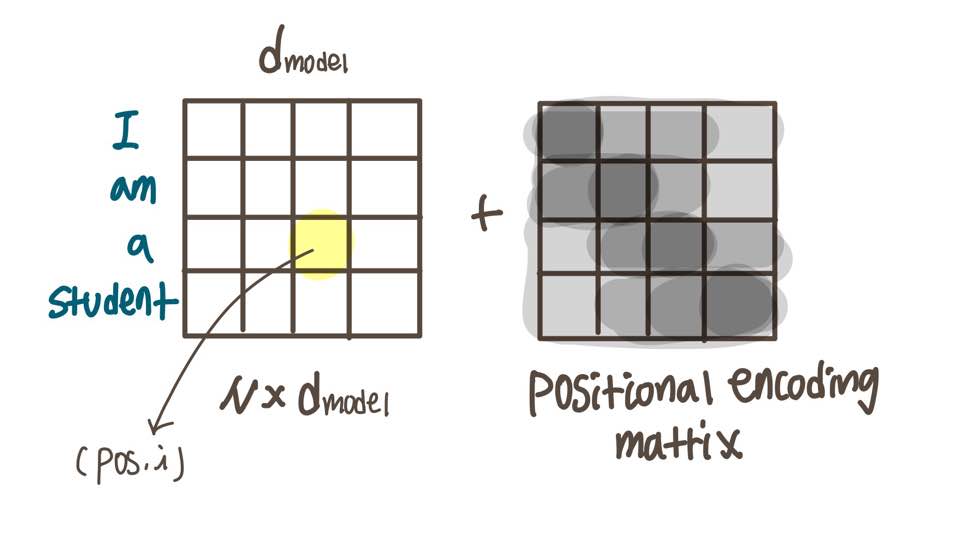 dmodel
I
am
a
student
+
N × dmodel
(pos.i)
positional encoding
matrix